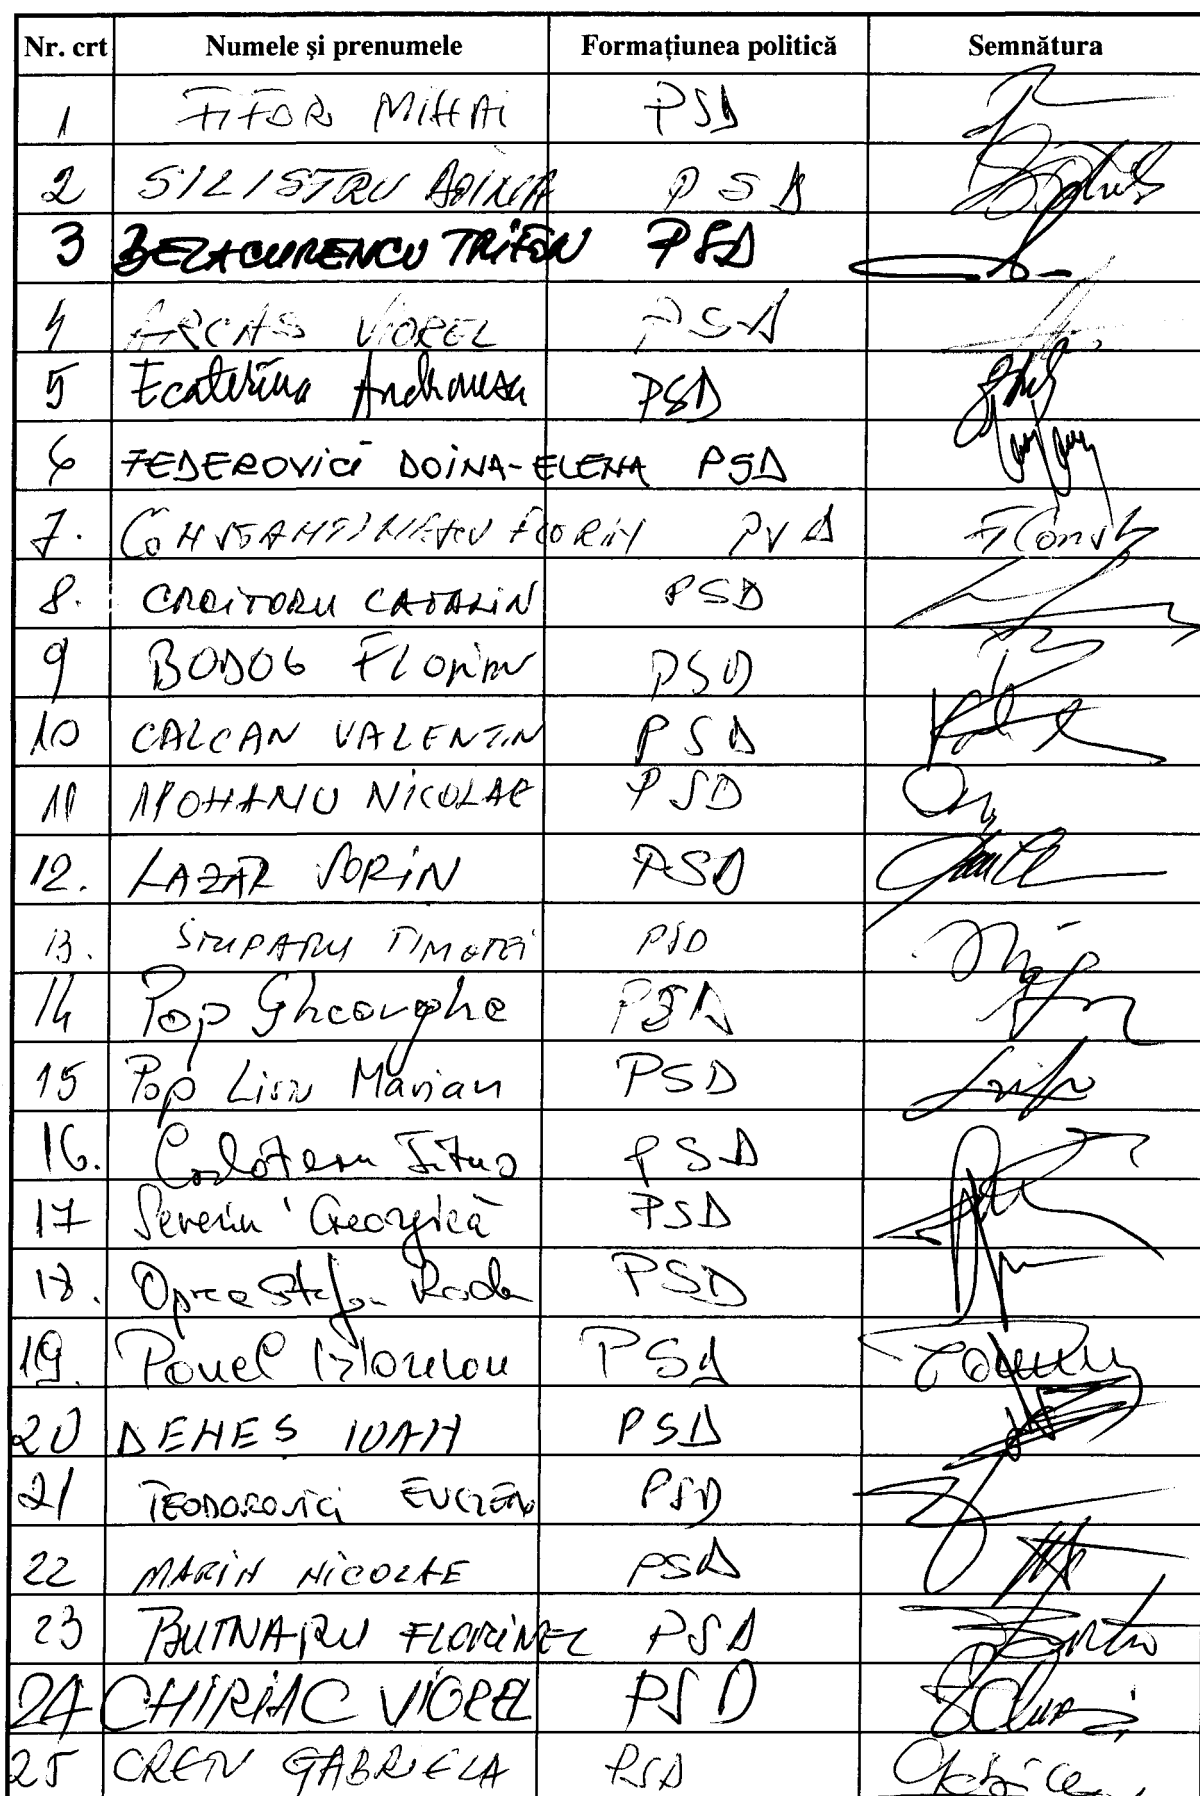 Nr. crt Numele și prenumele Formațiunea politică Semnătura
1 FIFOR MIHAI PSD
2 SILISTRU DOINA PSD
3 BELACURENCU TRIFON PSD
4 ARCAS VIOREL PSD
5 Ecaterina Andronescu PSD
6 FEDEROVICI DOINA-ELENA PSD
7. CONSTANTINESCU FLORIN PSD
8. CROITORU CATALIN PSD
9 BODOG FLORIAN PSD
10 CALCAN VALENTIN PSD
11 MOHANU NICOLAE PSD
12. LAZAR SORIN PSD
13. STUPARU TIMOTEI PSD
14 Pop Gheorghe PSD
15 Pop Liviu Marian PSD
16. Corlatean Titus PSD
17 Severin Georgică PSD
18. Oprea Stefan Radu PSD
19. Pavel PSD
20 DENEȘ IOAN PSD
21 TEODOROVICI EUGEN PSD
22 MARIN NICOLAE PSD
23 BUTNARU FLORINEL PSD
24 CHIRIAC VIOREL PSD
25 CRETU GABRIELA PSD